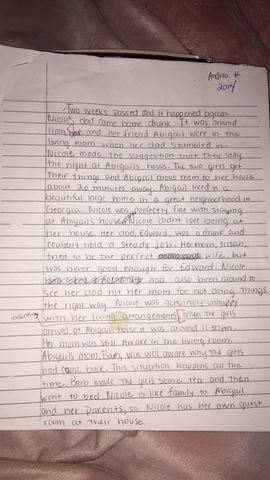 Andrea K
2014
Two weeks passed and it happened again.
Nicoles dad came home drunk. It was around
11pm, she and her friend Abigail were in the
living room when her dad stumbled in.
Nicole made the suggestion that they stay
the night at Abigails house. The two girls got
their things and Abigail drove them to her house
about 20 minutes away. Abigail lived in a
beautiful large home in a great neighborhood in
Georgia. Nicole was perfectly fine with staying
at Abigails house. Nicole didnt love being at
her house. Her dad, Edward, was a drunk and
couldn't hold a steady job. Her mom, Susan,
tried to be the perfect wife, but
was never good enough for Edward. Nicole
had also been around to
see her dad hit her mom for not doing things
the right way. Nicole was genuinely unhappy
indent with her living arrangements. When the girls
arrived at Abigails house it was around 11:30pm.
Her mom was still awake in the living room.
Abigails mom, Barb, was well aware why the girls
had came back. This situation happens all the
time. Barb made the girls some tea and then
went to bed. Nicole is like family to Abigail
and her parents, so Nicole has her own guest
room at their house.